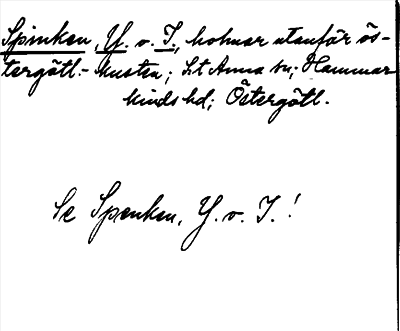 Spinken, Y. o. I., holmar utanför ös-
tergötl.-kusten; S:t Anna sn; Hammar
kinds hd; Östergötl.
Se Spenken, Y. o. I.!